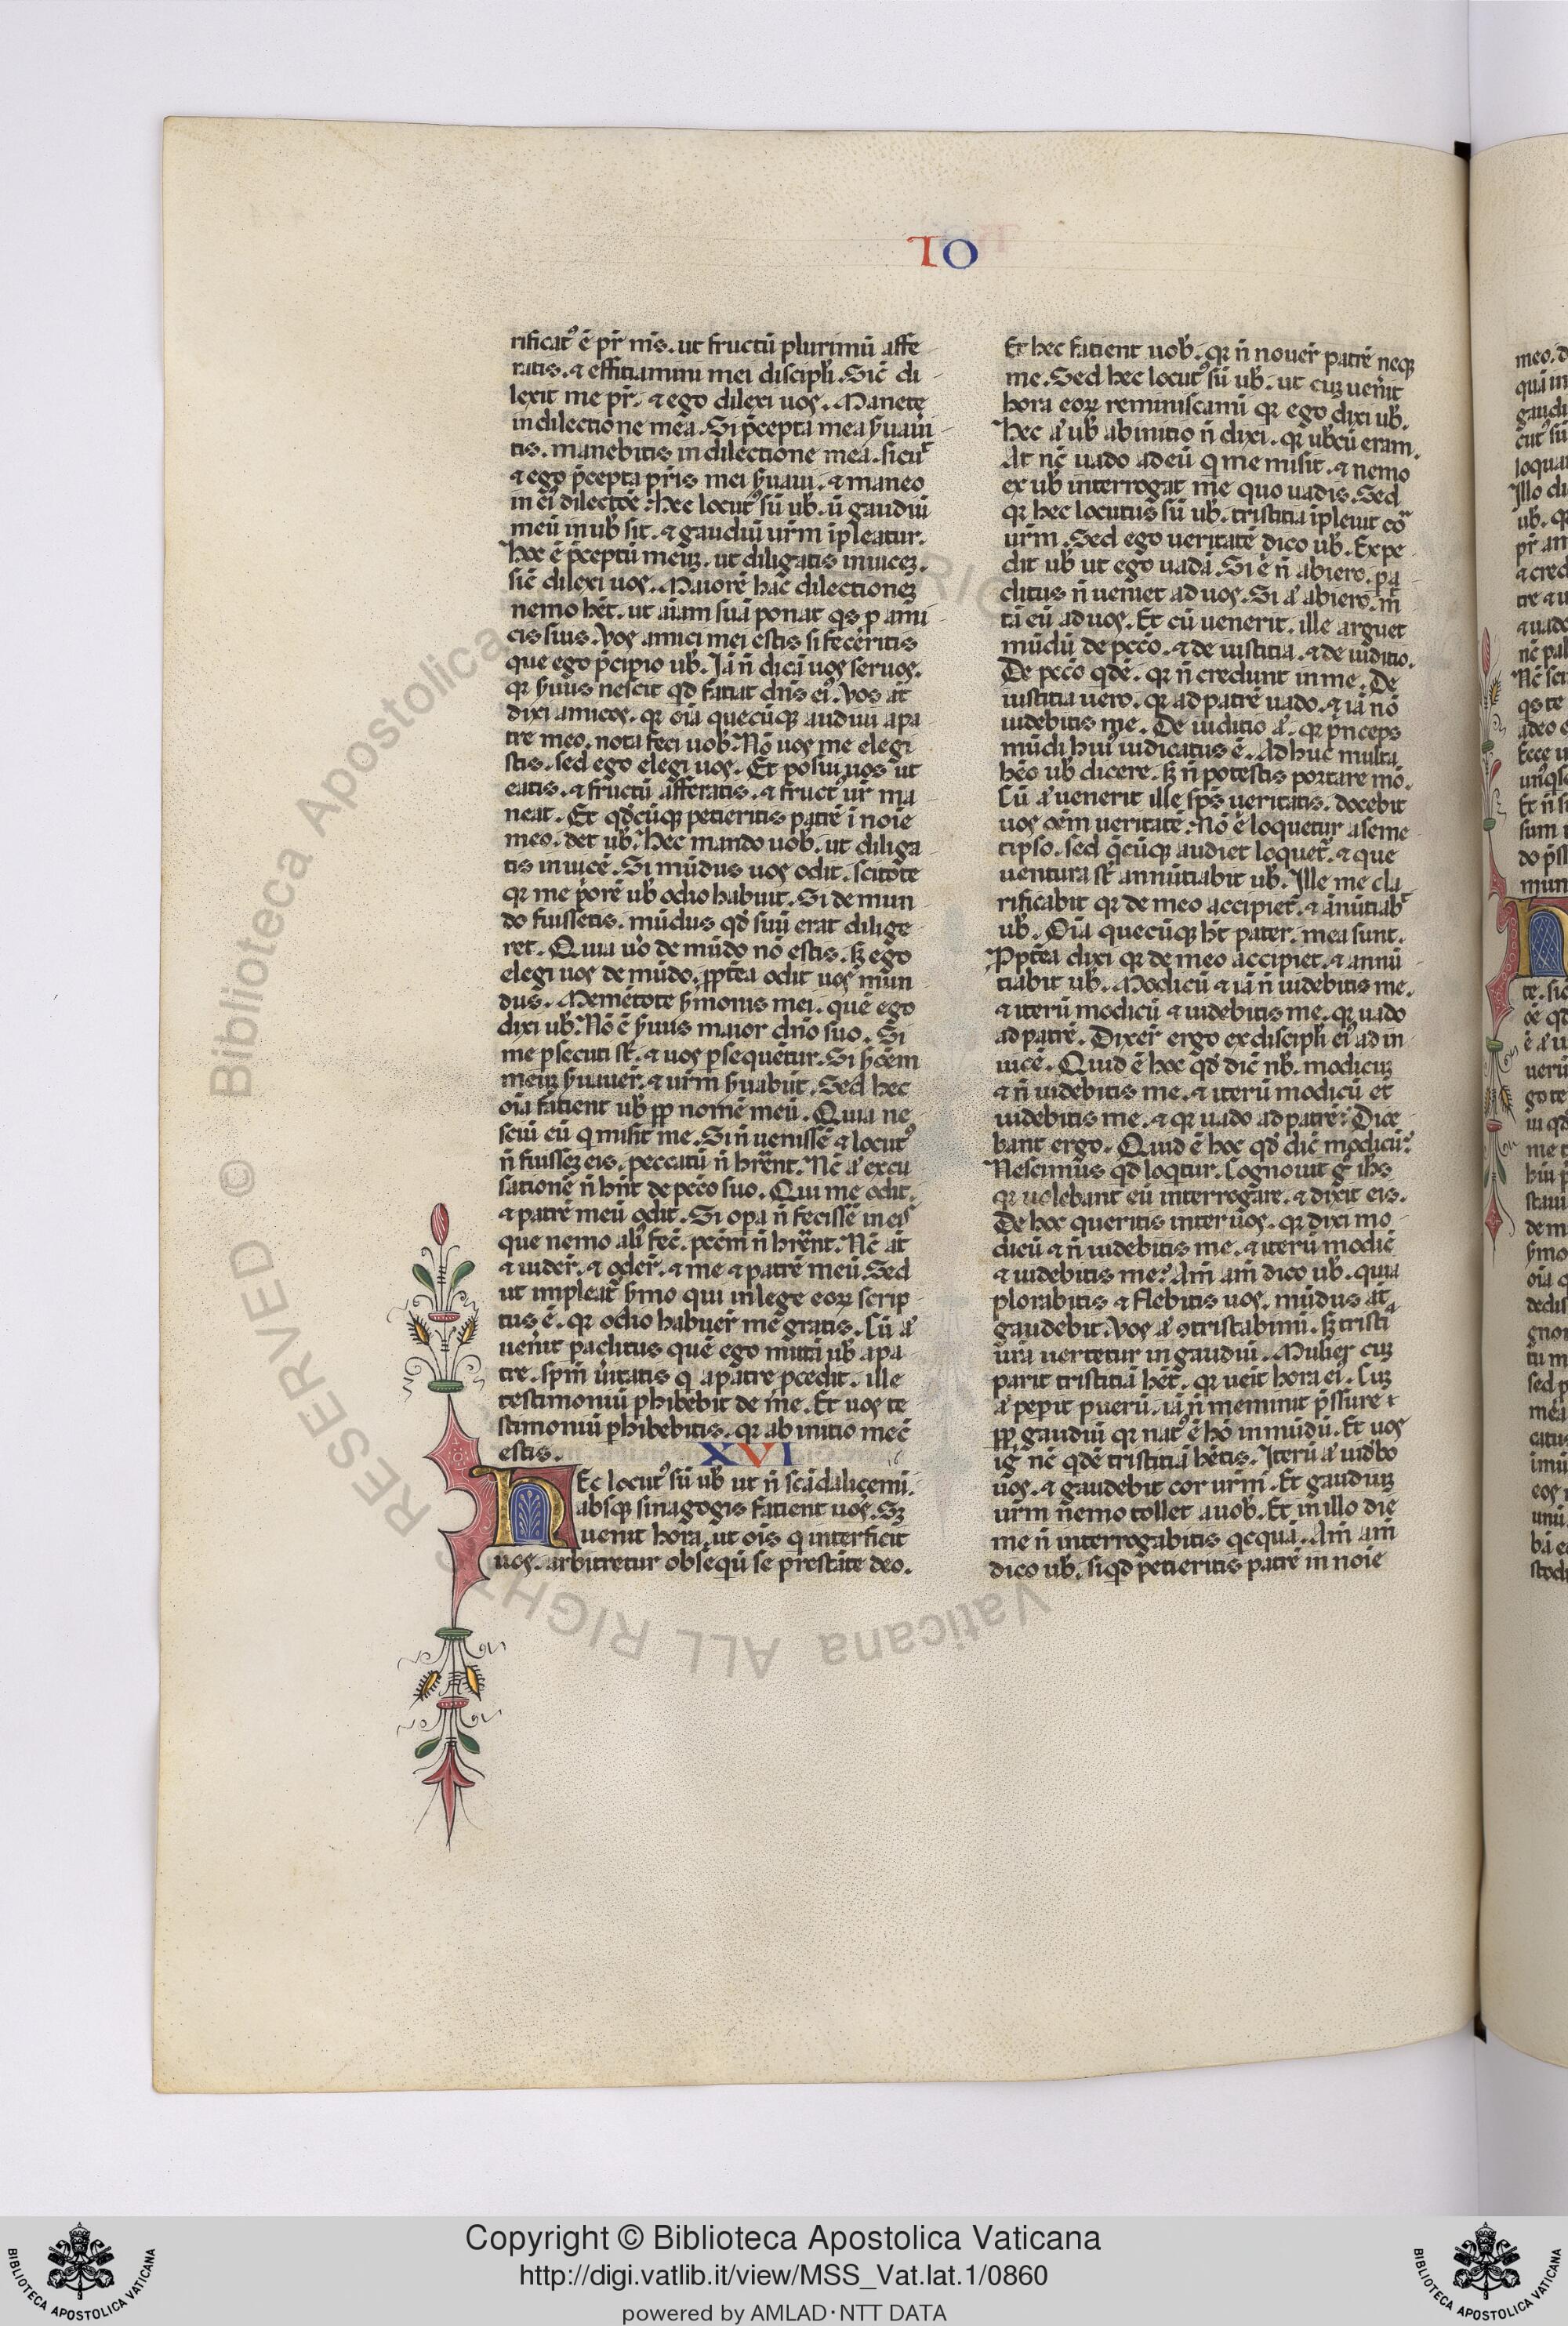 IO
rificatꝰ ē pr̄ mꝰs. ut fructū plurimū affe
ratis. ⁊ efficiamini mei discipli. Sic̄ di
lexit me pr̄. ⁊ ego dilexi uos. Manete
in dilectione mea. Si p̄cepta mea ẜuaūi
tis. manebitis in dilectione mea. sicut
⁊ ego p̄cepta pr̄is mei ẜuaui. ⁊ maneo
in eiꝰ dilectōe. Hec locutꝰ sū ub̄. ū gaudiū
meū in ub̄ sit. ⁊ gaudiū urm̄ īpleatur.
Hoc ē p̄ceptū meuꝫ. ut diligatis inuiceꝫ.
sic̄ dilexi uos. Maiorē hāc dilectioneꝫ
nemo hēt. ut aīam suā ponat qs p ami
cis suis. Vos amici mei estis si feceritis
que ego p̄cipio ub̄. Iā n̄ dicā uos seruos.
qꝛ ẜuus nescit qd̄ faciat dn̄s eiꝰ. Vos āt
dixi amicos. qꝛ oīa quecūqꝫ audiui apa
tre meo. nota feci uob̄. Nō uos me elegi
stis. sed ego elegi uos. Et posui uos ut
eatis. ⁊ fructū afferatis. ⁊ fructꝰ ur̄ ma
neat. Et qd̄cūqꝫ petieritis patrē ī noīe
meo. det ub̄. Hec mando uob̄. ut diliga
tis inuicē. Si mūdus uos odit. scitote
qꝛ me p̄orē ub̄ odio habuit. Si de mun
do fuissetis. mūdus qd̄ suū erat dilige
ret. Quia uo̊ de mūdo nō estis. sꝫ ego
elegi uos de mūdo. ꝓpt̄ea odit uos mun
dus. Memētote ẜmonis mei. quē ego
dixi ub̄. Nō ē ẜuus maior dn̄o suo. Si
me ꝑsecuti st̄. ⁊ uos ꝑsequētur. Si ẜōem
meuꝫ ẜuauer̄. ⁊ urm̄ ẜuabūt. Sed hec
oīa facient ub̄ ꝓp nomē meū. Quia ne
sciūi eū q misit me. Si n̄ uenissē ⁊ locutꝰ
n̄ fuisseꝫ eis. peccatū n̄ hrēnt. Nc̄ aͣ excu
sationē n̄ hn̄t de pcc̄o suo. Qui me odit.
⁊ patrē meū odit. Si opa n̄ fecissē in eis
que nemo aliꝰ fec̄. pcc̄m n̄ hrēnt. Nc̄ āt
⁊ uider̄. ⁊ oder̄. ⁊ me ⁊ patrē meū. Sed
ut impleat̄ ẜmo qui in lege eoꝝ scrip
tus ē. qꝛ odio habuer̄ me gratis. Cū aͣ
uen̄it paclitus quē ego mittā ub̄ apa
tre. spm̄ ūitatis q apatre pcedit. ille
testimoniū phibebit de me. Et uos te
stimoniū phibebitis. qꝛ ab initio mec̄
estis.
XVI
HEc locutꝰ sū ub̄ ut n̄ scādaliçemī.
absqꝫ sinagogis facient uos. Sꝫ
uenit hora. ut oīs q interficit
uos. arbitretur obsequiū se prestāte deo.
Et hec facient uob̄. qꝛ n̄ nouer̄ patrē neqꝫ
me. Sed hec locutꝰ sū ub̄. ut cuꝫ uen̄it
hora eoꝝ reminiscamī qꝛ ego dixi ub̄.
Hec aͣ ub̄ ab initio n̄ dixi. qꝛ ub̄cū eram.
At nc̄ uado ad eū q me misit. ⁊ nemo
ex ub̄ interrogat me quo uadis. Sed
qꝛ hec locutus sū ub̄. tristitia īpleuit co͛
urm̄. Sed ego ueritatē dico ub̄. Expe
dit ub̄ ut ego uadā. Si .n. n̄ abiero. pa
clitus n̄ ueniet ad uos. Si aͣ abiero. mit
tā eū ad uos. Et cū uenerit. ille arguet
mūdū de pcc̄o. ⁊ de iustitia. ⁊ de iuditio.
De pcc̄o qdē. qꝛ n̄ credunt in me. De
iustitia uero. qꝛ ad patrē uado. ⁊ iā nō
uidebitis me. De iuditio aͣ. qꝛ p̄nceps
mūdi huiꝰ iudicatus ē. Ad huc multa
hēo ub̄ dicere. sꝫ n̄ potestis portare mō.
Cū aͣ uenerit ille sp̄s ueritatis. docebit
uos oēm ueritatē. Nō .n. loquetur a seme
tipso. sed q̄cūqꝫ audiet loquet̄. ⁊ que
uentura st̄ annūtiabit ub̄. Ille me cla
rificabit qꝛ de meo accipiet. ⁊ ānūtiabit
ub̄. Oīa quecūqꝫ ht̄ pater. mea sunt.
Ppt̄ea dixi qꝛ de meo accipiet. ⁊ annū
tiabit ub̄. Modicū ⁊ iā n̄ uidebitis me.
⁊ iterū modicū ⁊ uidebitis me. qꝛ uado
ad patrē. Dixer̄ ergo ex discipli eiꝰ ad in
uicē. Quid ē hoc qd̄ dic̄ nb̄. modicuꝫ
⁊ n̄ uidebitis me. ⁊ iterū modicū et
uidebitis me. ⁊ qꝛ uado ad patrē? Dice
bant ergo. Quid ē hoc qd̄ dic̄ modicū?
Nescimus qd̄ loqtur. Cognouit g̊ ihs̄
qꝛ uolebant eū interrogare. ⁊ dixit eis.
De hoc queritis inter uos. qꝛ dixi mo
dicū ⁊ n̄ uidebitis me. ⁊ iterū modic̄
⁊ uidebitis me? Am̄ am̄ dico ub̄. quia
plorabitis ⁊ flebitis uos. mūdus āt
gaudebit. Vos aͣ ꝯtristabimī. sꝫ tristi
ūrā uertetur in gaudiū. Mulier cuꝫ
parit tristitiā hēt. qꝛ uēit hora eiꝰ. Cuꝫ
aͣ pepit puerū. iā n̄ meminit p̄ssure
ꝓp gaudiū qꝛ natꝰ ē hō in mūdū. Et uos
ig̊ nc̄ qdē tristitiā hētis. Iterū aͣ uidēbo
uos. ⁊ gaudebit cor urm̄. Et gaudiuꝫ
urm̄ nemo tollet a uob̄. Et in illo die
me n̄ interrogabitis qcquā. Am̄ am̄
dico ub̄. siqd petieritis patrē in noīe
Copyright © Biblioteca Apostolica Vaticana
http://digi.vatlib.it/view/MSS_Vat.lat.1/0860
powered by AMLAD·NTT DATA
BIBLIOTECA APOSTOLICA VATICANA
BIBLIOTECA APOSTOLICA VATICANA
© Biblioteca Apostolica Vaticana ALL RIGHTS RESERVED